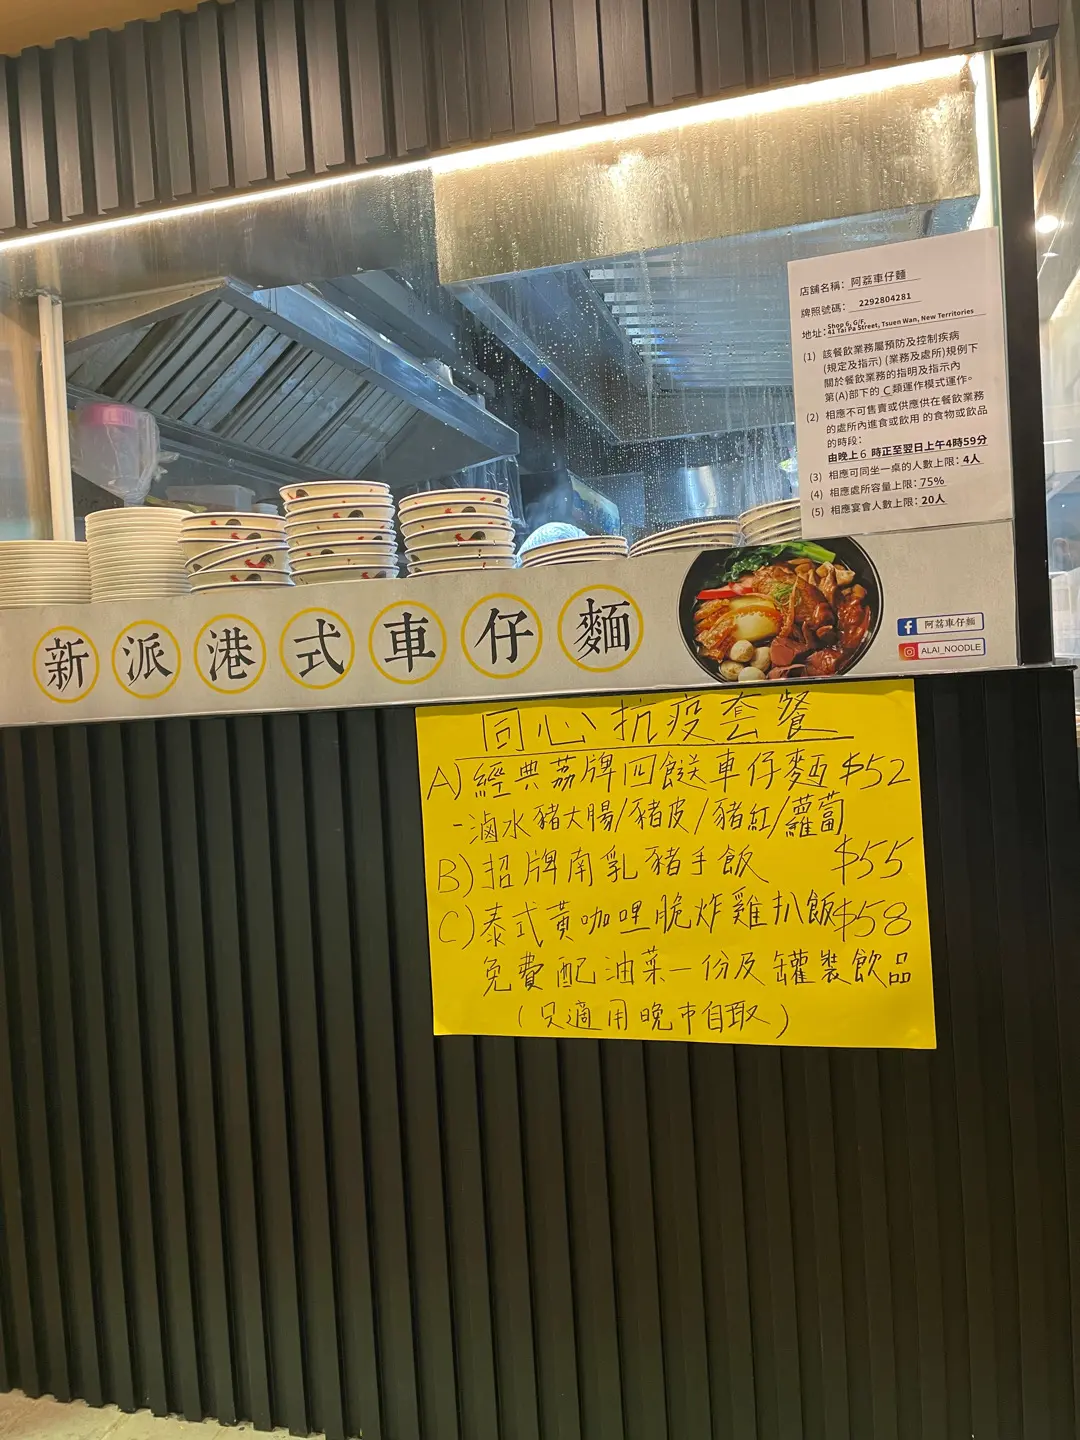 店舖名稱：阿荔車仔麵
牌照號碼：2292804281
地址：Shop 6, G/F,
41 Tai Pa Street, Tsuen Wan, New Territories
(1) 該餐飲業務屬預防及控制疾病
(規定及指示) (業務及處所)規例下
關於餐飲業務的指明及指示內
第(A)部下的 C類運作模式運作。
(2) 相應不可售賣或供應供在餐飲業務
的處所內進食或飲用 的食物或飲品
的時段：
由晚上6 時正至翌日上午4時59分
(3) 相應可同坐一桌的人數上限：4人
(4) 相應處所容量上限：75%
(5) 相應宴會人數上限：20人
新派港式車仔麵
阿荔車仔麵
ALAI_NOODLE
同心抗疫套餐
A) 經典荔牌四餸車仔麵 $52
-滷水豬大腸/豬皮/豬紅/蘿蔔
B) 招牌南乳豬手飯 $55
C) 泰式黃咖哩脆炸雞扒飯 $58
免費配油菜一份及罐裝飲品
(只適用晚市自取)